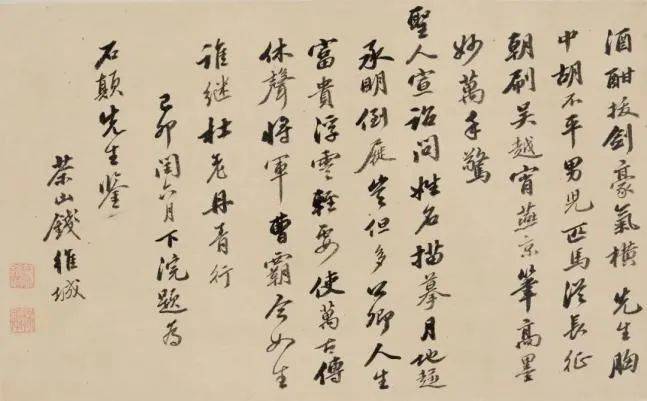 酒酣拔劍豪氣橫 先生胸
中胡不平男兒匹馬從長征
朝刷吳越宵燕京筆高墨
妙萬手驚
聖人宣詔問姓名描摹月地趨
承明倒屣豈但多公卿人生
富貴浮雲輕要使萬古傳
休聲將軍曹霸今如生
誰继杜老丹青行
己卯閏六月下浣題為
石顛先生鉴
茶山錢維城